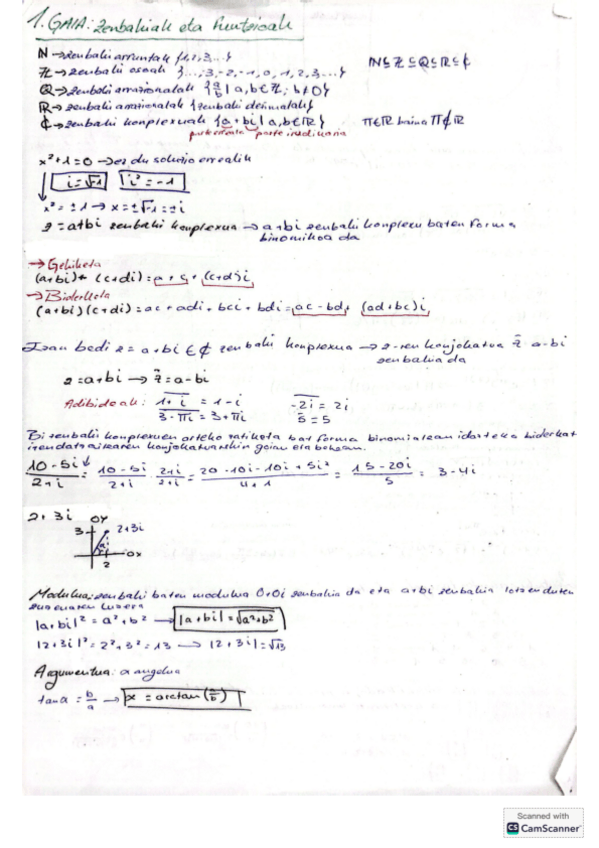 1. GAIA: Zenbakiak eta funtzioak
N → zenbaki arruntak {1,2,3...}
Z → zenbaki osoak {...,-3,-2,-1,0,1,2,3...}
N ⊆ Z ⊆ Q ⊆ R ⊆ C
Q → zenbaki arrazionalak {a/b | a,b ∈ Z; b≠0}
R → zenbaki arrazionalak {zenbaki dezimalak}
C → zenbaki konplexuak {a+bi | a,b ∈ R}
π∈R baina π∉R
parte erreala parte irudikaria
x²+1=0 → ez du soluzio errealik
i=√-1 i²=-1
x²=±1 → x=±√-1=±i
z=a+bi zenbaki konplexua → a+bi zenbaki konplexu baten forma
binomikoa da
→ Gehiketa
(a+bi)+(c+di)=a+c+(c+d)i
→ Biderketa
(a+bi)(c+di)=ac+adi+bci+bdi=ac-bd+(ad+bc)i
Izan bedi z=a+bi ∈ C zenbaki konplexua → z-ren konjokatua z̄ a-bi
zenbakia da
z=a+bi → z̄=a-bi
Adibideak: \overline{1+i} = 1-i \overline{-2i} = 2i
\overline{3-πi} = 3+πi \overline{5} = 5
Bi zenbaki konplexuen arteko zatiketa bat forma binomialean idazteko biderkat
izendatzailearen konjokatuarekin goian eta behean.
(10-5i)/(2+i) = (10-5i)/(2+i) · (2+i)/(2+i) = (20-10i-10i+5i²)/(4+1) = (15-20i)/5 = 3-4i
2+3i
OY
3 2+3i
α OX
2
Modulua: zenbaki baten modulua 0+0i zenbakia da eta a+bi zenbakia lotzen duten
zuzenaren luzera
|a+bi|²=a²+b² → |a+bi|=√a²+b²
|2+3i|²=2²+3²=13 → |2+3i|=√13
Argumentua: α angelua
tanα = b/a → α = arctan(a/b)
Scanned with
CS CamScanner